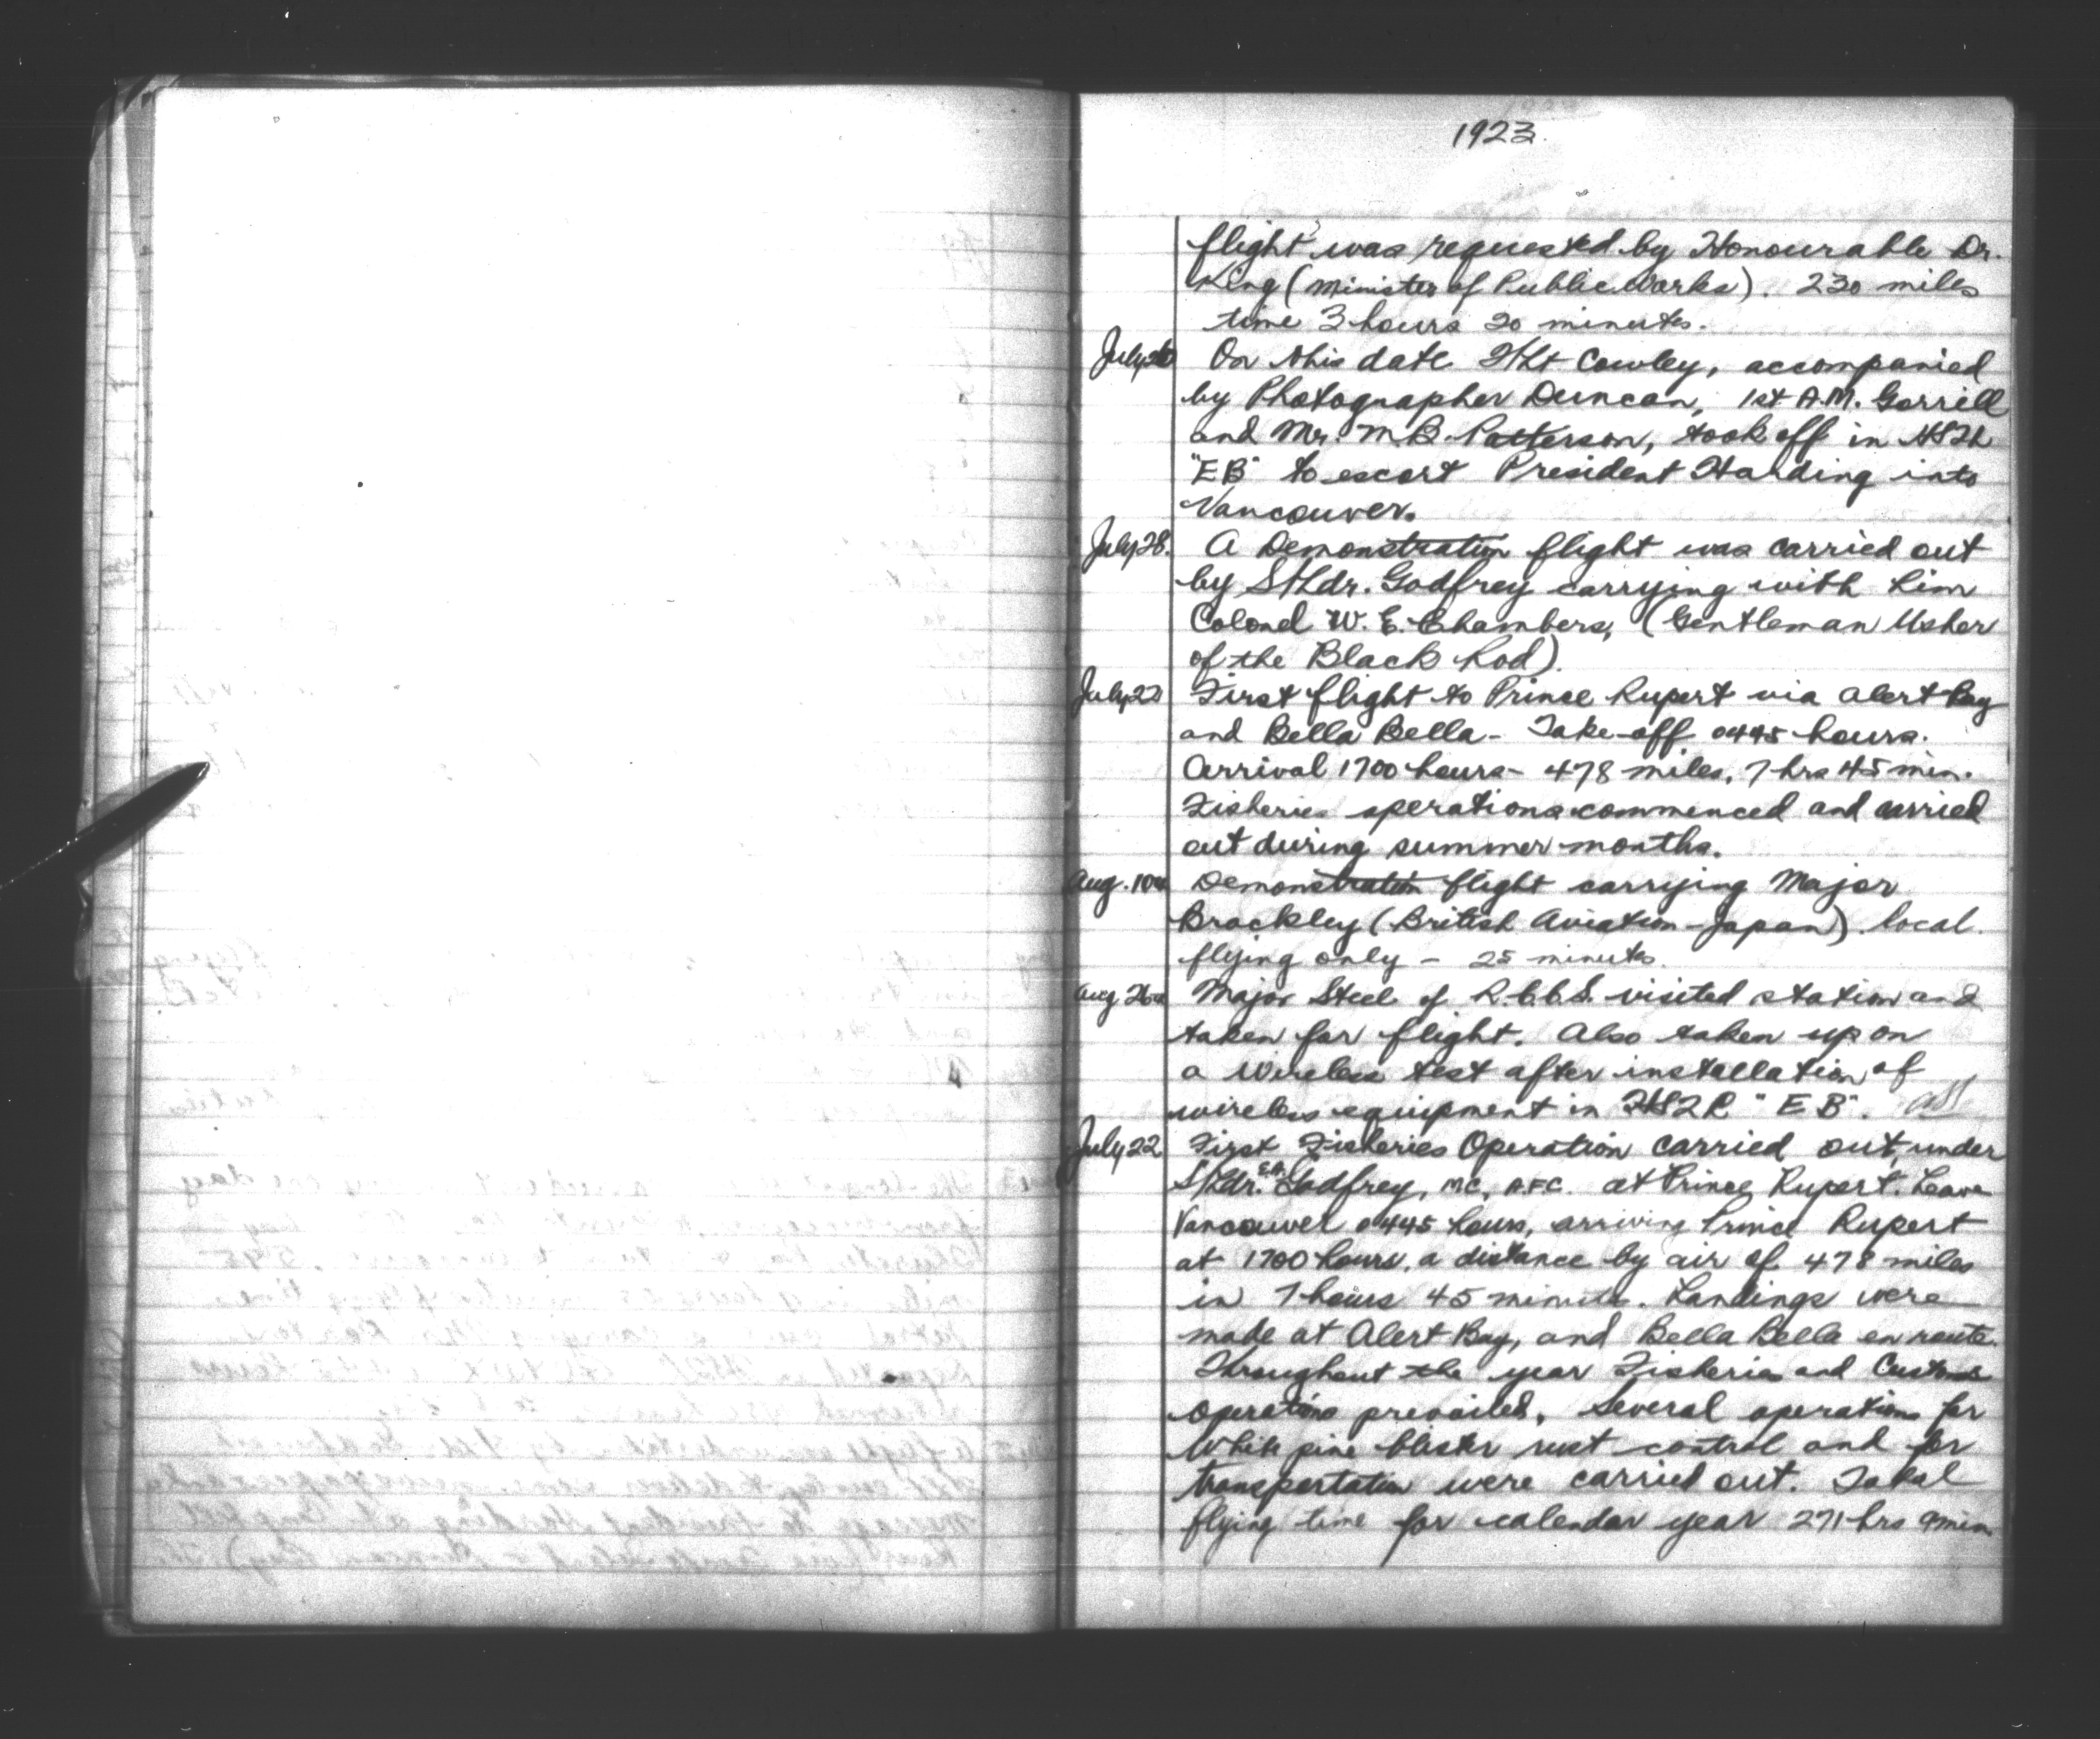 1923.
flight was requested by Honourable Dr.
King (Minister of Public Works). 230 miles
time 3 hours 20 minutes.
July 26 On this date F/Lt Cowley, accompanied
by Photographer Duncan, 1st A.M. Gorrill
and Mr. M.B. Patterson, took off in HS2L
"EB" to escort President Harding into
Vancouver.
July 28. A Demonstration flight was carried out
by S/Ldr. Godfrey carrying with him
Colonel W. E. Chambers, (Gentleman Usher
of the Black Rod).
July 22 First flight to Prince Rupert via Alert Bay
and Bella Bella - Take-off 0445 hours.
Arrival 1700 hours - 478 miles, 7 hrs 45 min.
Fisheries operations commenced and carried
out during summer months.
Aug. 10 Demonstration flight carrying Major
Brackley (British Aviation - Japan). local
flying only - 25 minutes.
Aug 26 Major Steel of R.C.C.S. visited station and
taken for flight. Also taken up on
a wireless test after installation of
wireless equipment in HS2L "EB".
July 22 First Fisheries Operation carried out, under
S/Ldr. E.A. Godfrey, MC, AFC. at Prince Rupert. Leave
Vancouver 0445 hours, arriving Prince Rupert
at 1700 hours, a distance by air of 478 miles
in 7 hours 45 minutes. Landings were
made at Alert Bay, and Bella Bella en route.
Throughout the year Fisheries and Customs
operations prevailed, Several operations for
White pine blister rust control and for
transportation were carried out. Total
flying time for calendar year 271 hrs 9 min